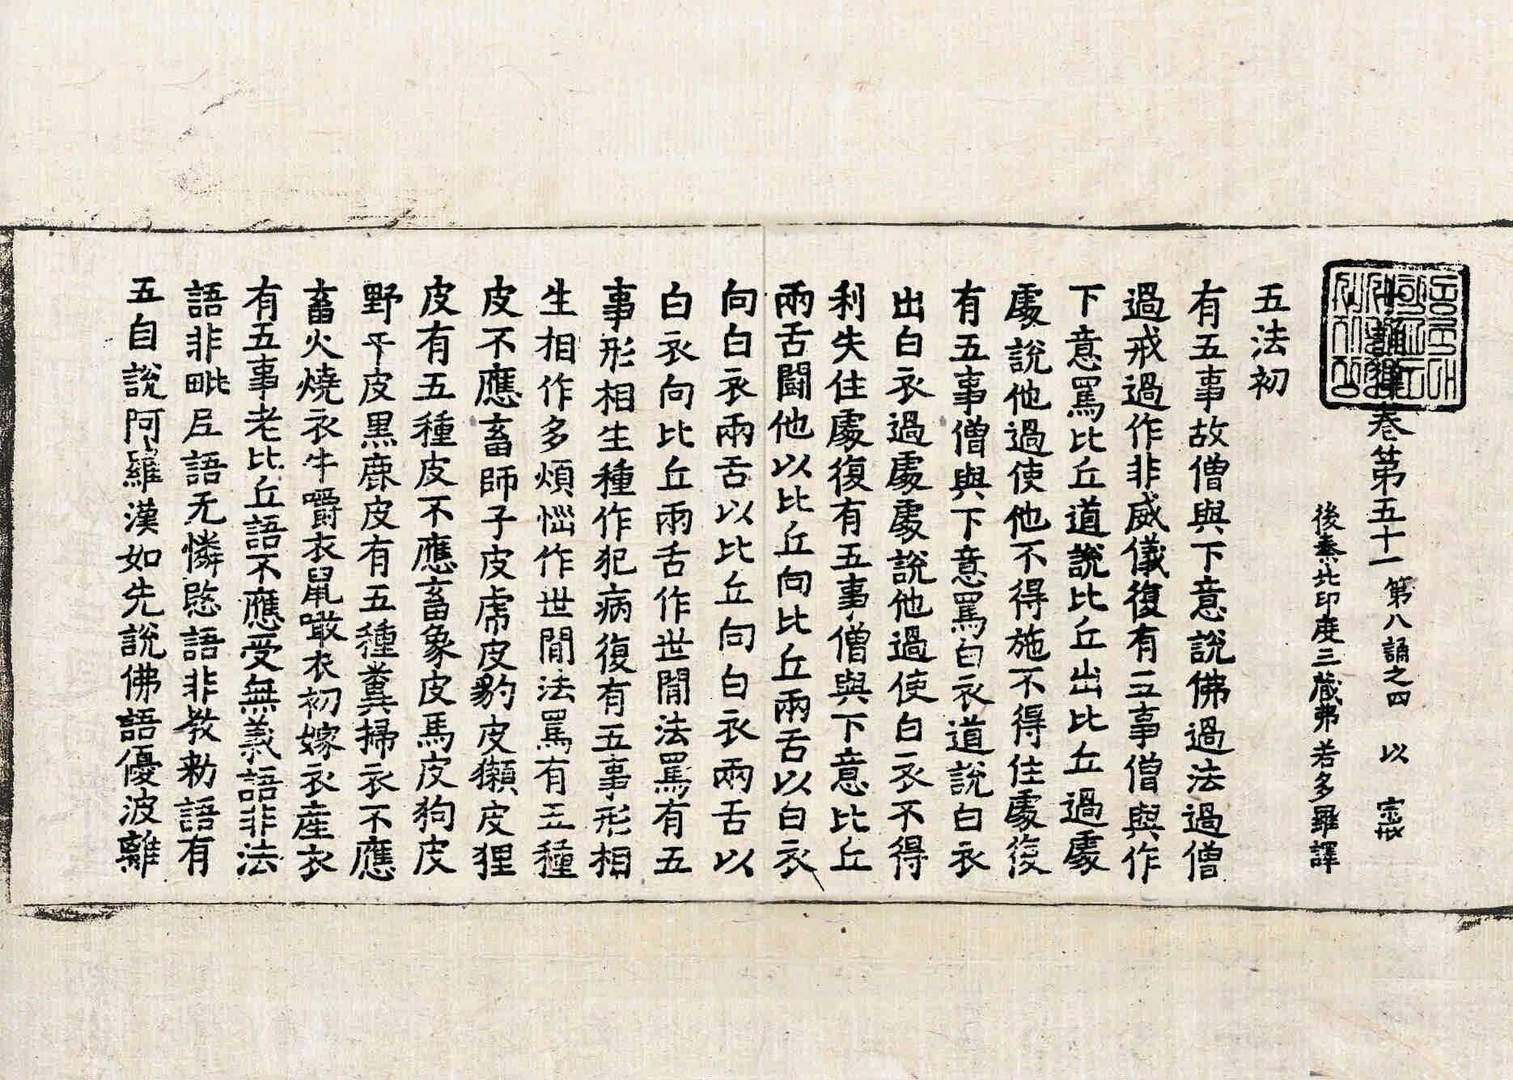 十誦律卷第五十一 第八誦之四 以
後秦北印度三藏弗若多羅譯
五法初
有五事故僧與下意說佛過法過僧
過戒過作非威儀復有五事僧與作
下意罵比丘道說比丘出比丘過處
處說他過使他不得施不得住處復
有五事僧與下意罵白衣道說白衣
出白衣過處處說他過使白衣不得
利失住處復有五事僧與下意比丘
兩舌鬪他以比丘向比丘兩舌以白衣
向白衣兩舌以比丘向白衣兩舌以
白衣向比丘兩舌作世間法罵有五
事形相生種作犯病復有五事形相
生相作多煩惱作世間法罵有五種
皮不應畜師子皮虎皮豹皮獺皮狸
皮有五種皮不應畜象皮馬皮狗皮
野干皮黑鹿皮有五種糞掃衣不應
畜火燒衣牛嚼衣鼠噉衣初嫁衣產衣
有五事老比丘語不應受無義語非法
語非毗尼語无憐愍語非教勑語有
五自說阿羅漢如先說佛語優波離